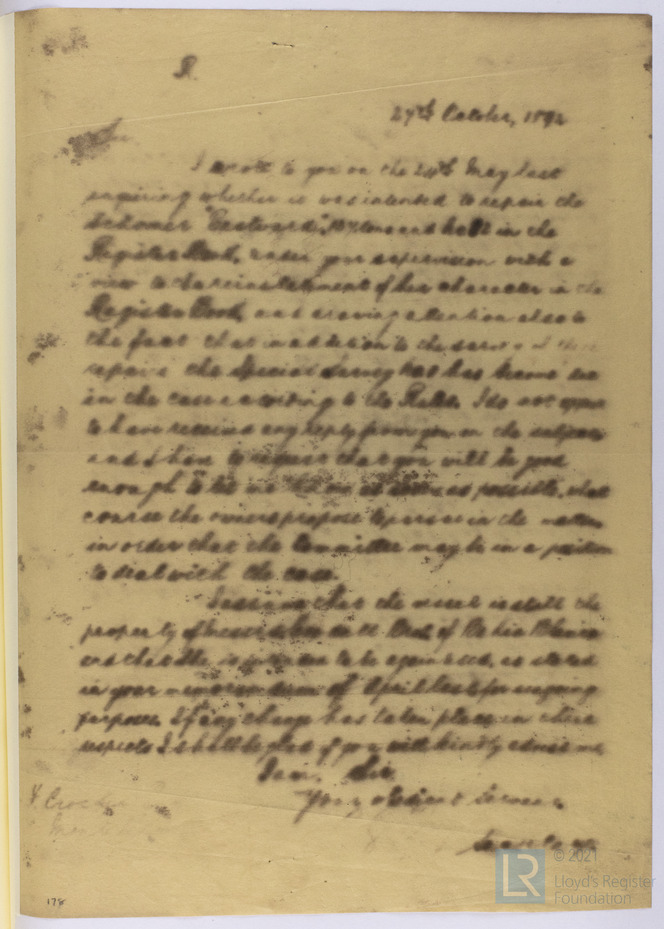 R.
27th October, 1892
Sir
I wrote to you on the 24th May last
enquiring whether it was intended to repair the
Schooner "Eastward", in the
Register Book, under your supervision with a
view to the reinstatement of her character in the
Register Book, and drawing attention also to
the fact that in addition to the survey
repairs the Special Survey No has become due
in the case according to the Rules. I do not appear
to have received any reply from you on the subject
and I have to request that you will be good
enough to let me know as soon as possible, what
course the owners propose to pursue in the matter
in order that the Committee may be in a position
to deal with the case.
I assume that the vessel is still the
property of Messrs of Bahia Blanca
and that she is intended to be again used, as stated
in your memorandum of April last for seagoing
purposes. If any change has taken place in these
respects I shall be glad if you will kindly advise me
I am, Sir,
Your obedient Servant
Secretary
178
LR
© 2021
Lloyd's Register
Foundation